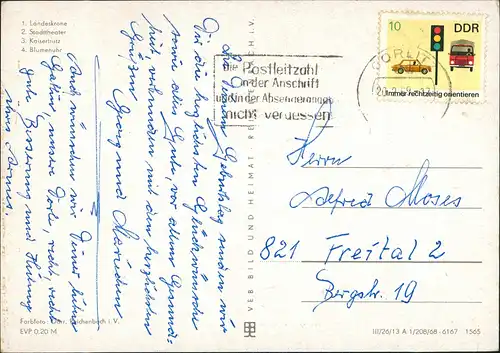 1. Landeskrone
2. Stadttheater
3. Kaisertrutz
4. Blumenuhr
Zu Deinem Geburtstag senden wir
Dir die herzlichsten Glückwünsche
sowie alles Gute, vor allem Gesund-
heit verbunden mit den herzlichsten
Grüßen
Georg und
Auch wünschen wir Deiner lieben
Gattin, unsere recht, recht
gute Besserung und Heilung
ihres Armes.
Farbfoto: Darr, Reichenbach i. V.
EVP 0,20 M
VEB BILD UND HEIMAT REICHENBACH I. V.
Die Postleitzahl
in der Anschrift
und in der Absenderangabe
nicht vergessen
GÖRLITZ
10
DDR
Immer rechtzeitig orientieren
Herrn
Alfred Moses
821 Freital 2
Bergstr. 19
III/26/13 A 1/208/68 - 6167 1565